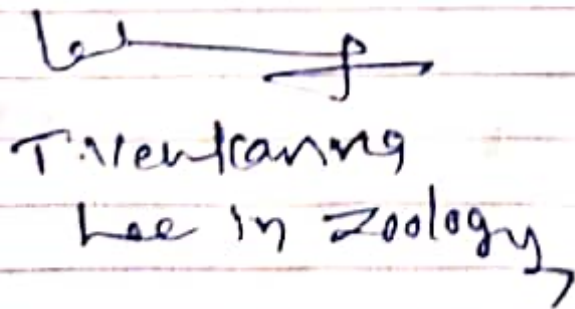 T. Venkanna
Lec in Zoology,